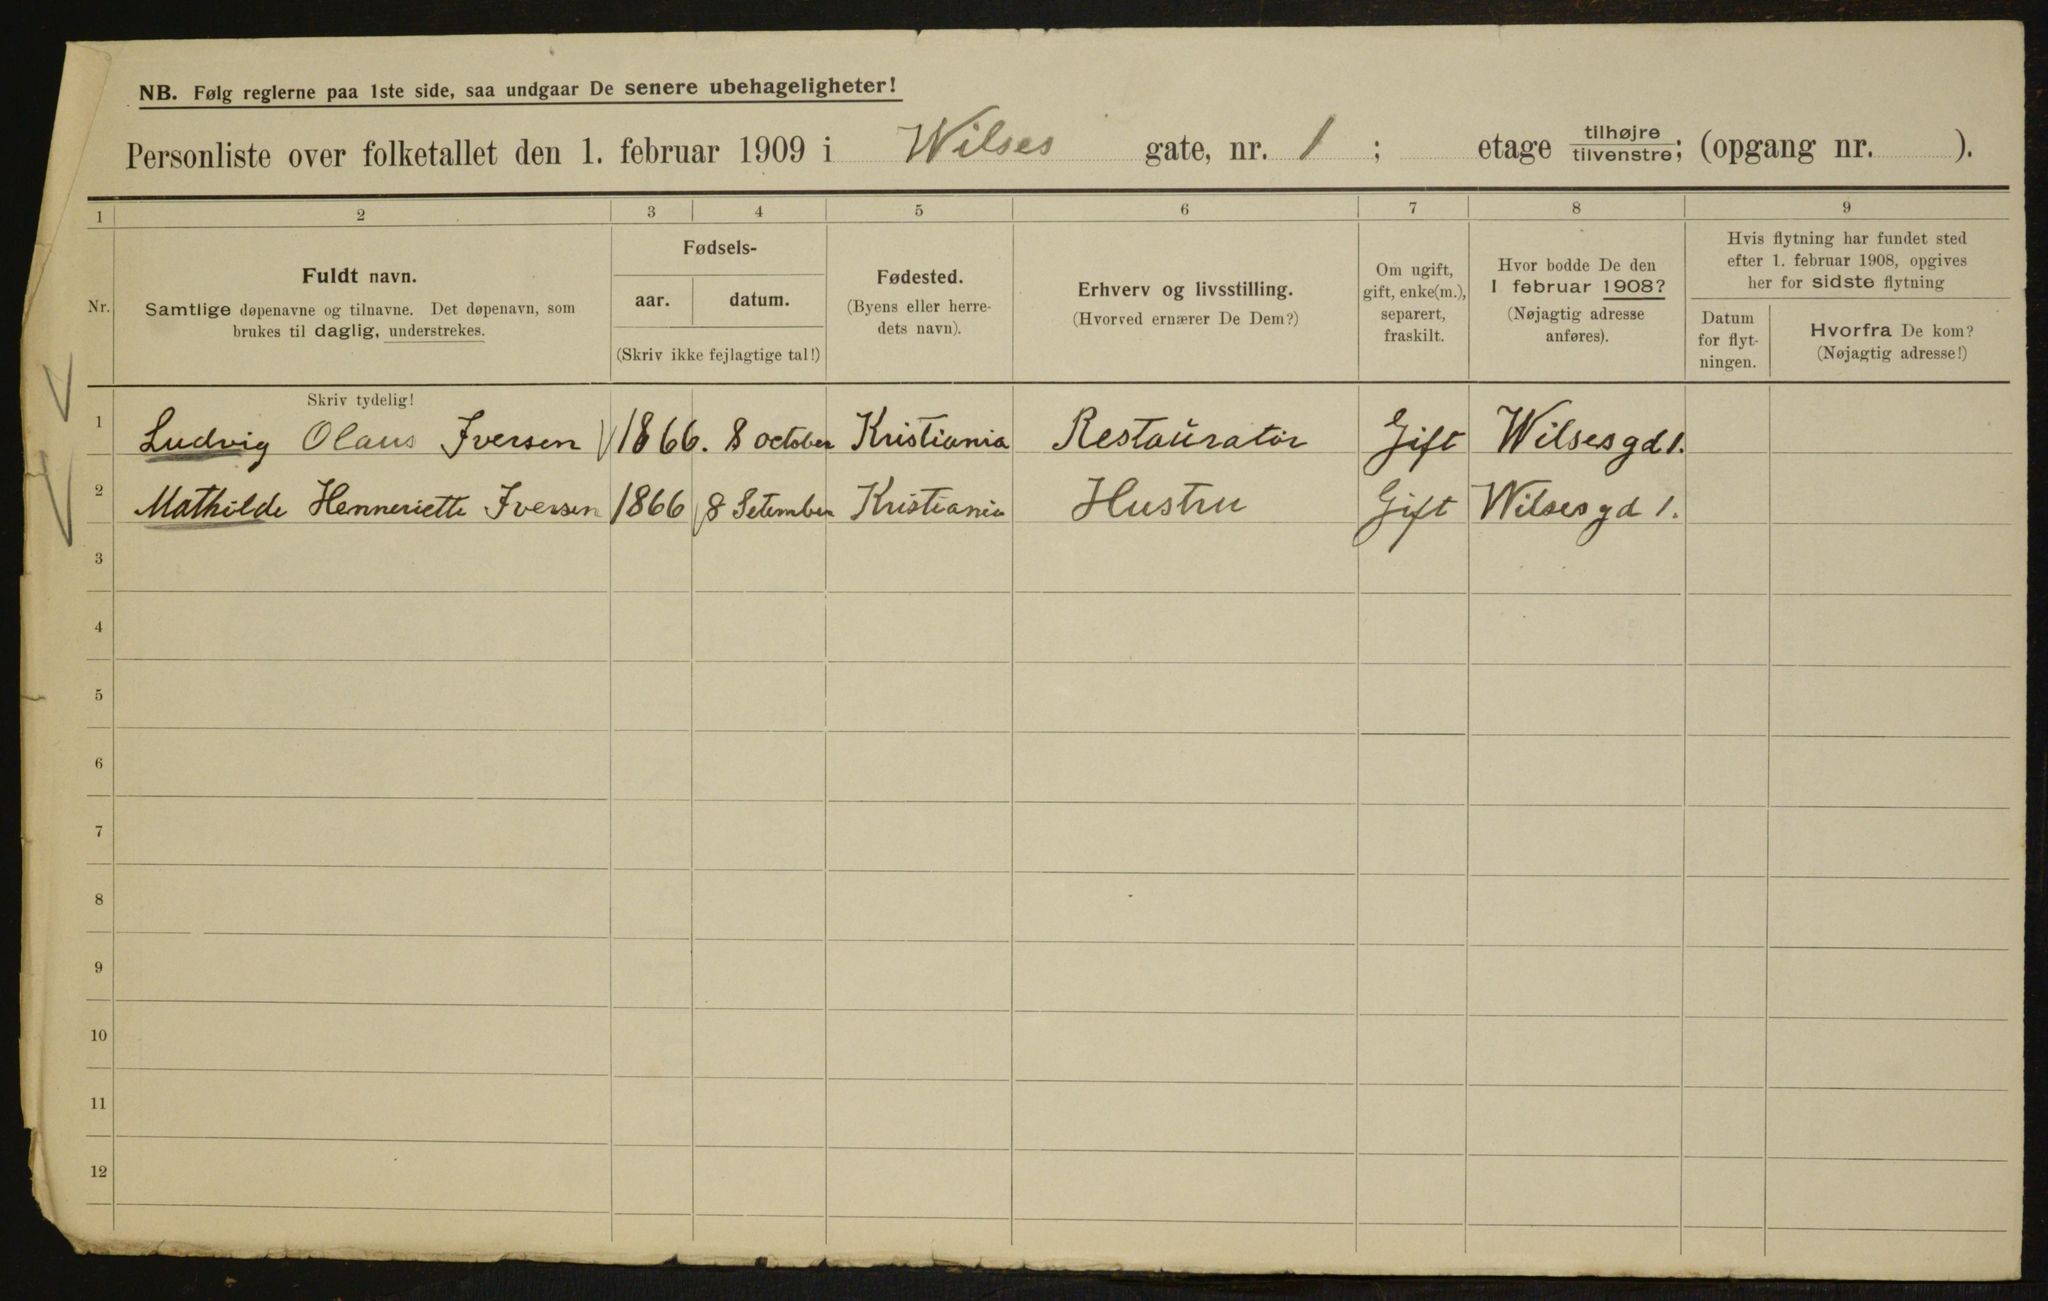 NB. Følg reglerne paa 1ste side, saa undgaar De senere ubehageligheter!
Personliste over folketallet den 1. februar 1909 i Wilses gate, nr. 1 ; etage tilhøjre/tilvenstre; (opgang nr. ).
1 2 3 4 5 6 7 8 9
Nr.
Fuldt navn.
Samtlige døpenavne og tilnavne. Det døpenavn, som
brukes til daglig, understrekes.
Fødsels-
aar. datum.
(Skriv ikke fejlagtige tal!)
Fødested.
(Byens eller herre-
dets navn).
Erhverv og livsstilling.
(Hvorved ernærer De Dem?)
Om ugift,
gift, enke(m.),
separert,
fraskilt.
Hvor bodde De den
1 februar 1908?
(Nøjagtig adresse
anføres).
Hvis flytning har fundet sted
efter 1. februar 1908, opgives
her for sidste flytning
Datum
for flyt-
ningen.
Hvorfra De kom?
(Nøjagtig adresse!)
Skriv tydelig!
1 Ludvig Olaus Iversen 1866. 8 october Kristiania Restauratør Gift Wilsesgd 1.
2 Mathilde Henneriette Iversen 1866 8 Setember Kristiania Hustru Gift Wilsesgd 1.
3
4
5
6
7
8
9
10
11
12